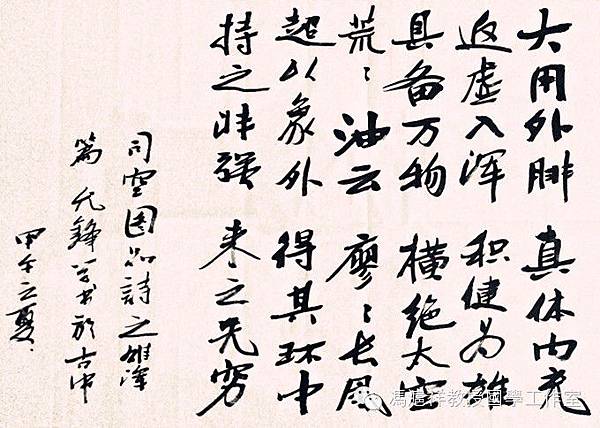 大用外腓 真体内充
返虚入浑 积健为雄
具备万物 横绝太空
荒〻油云 寥〻长风
超以象外 得其环中
持之非强 来之无穷
司空图品詩之雄渾
篇 允 书於古中
甲午之夏
馮 祥教授國學工作室